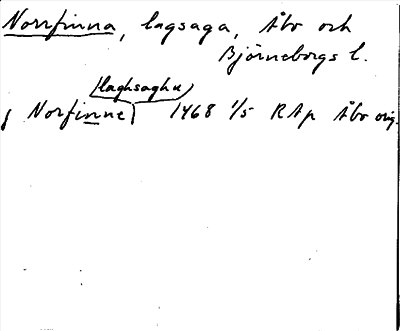 Norrfinna, lagsaga, Åbo och
Björneborgs l.
(laghsaghu)
j Norfinne 1468 1/5 RAp Åbo orig.